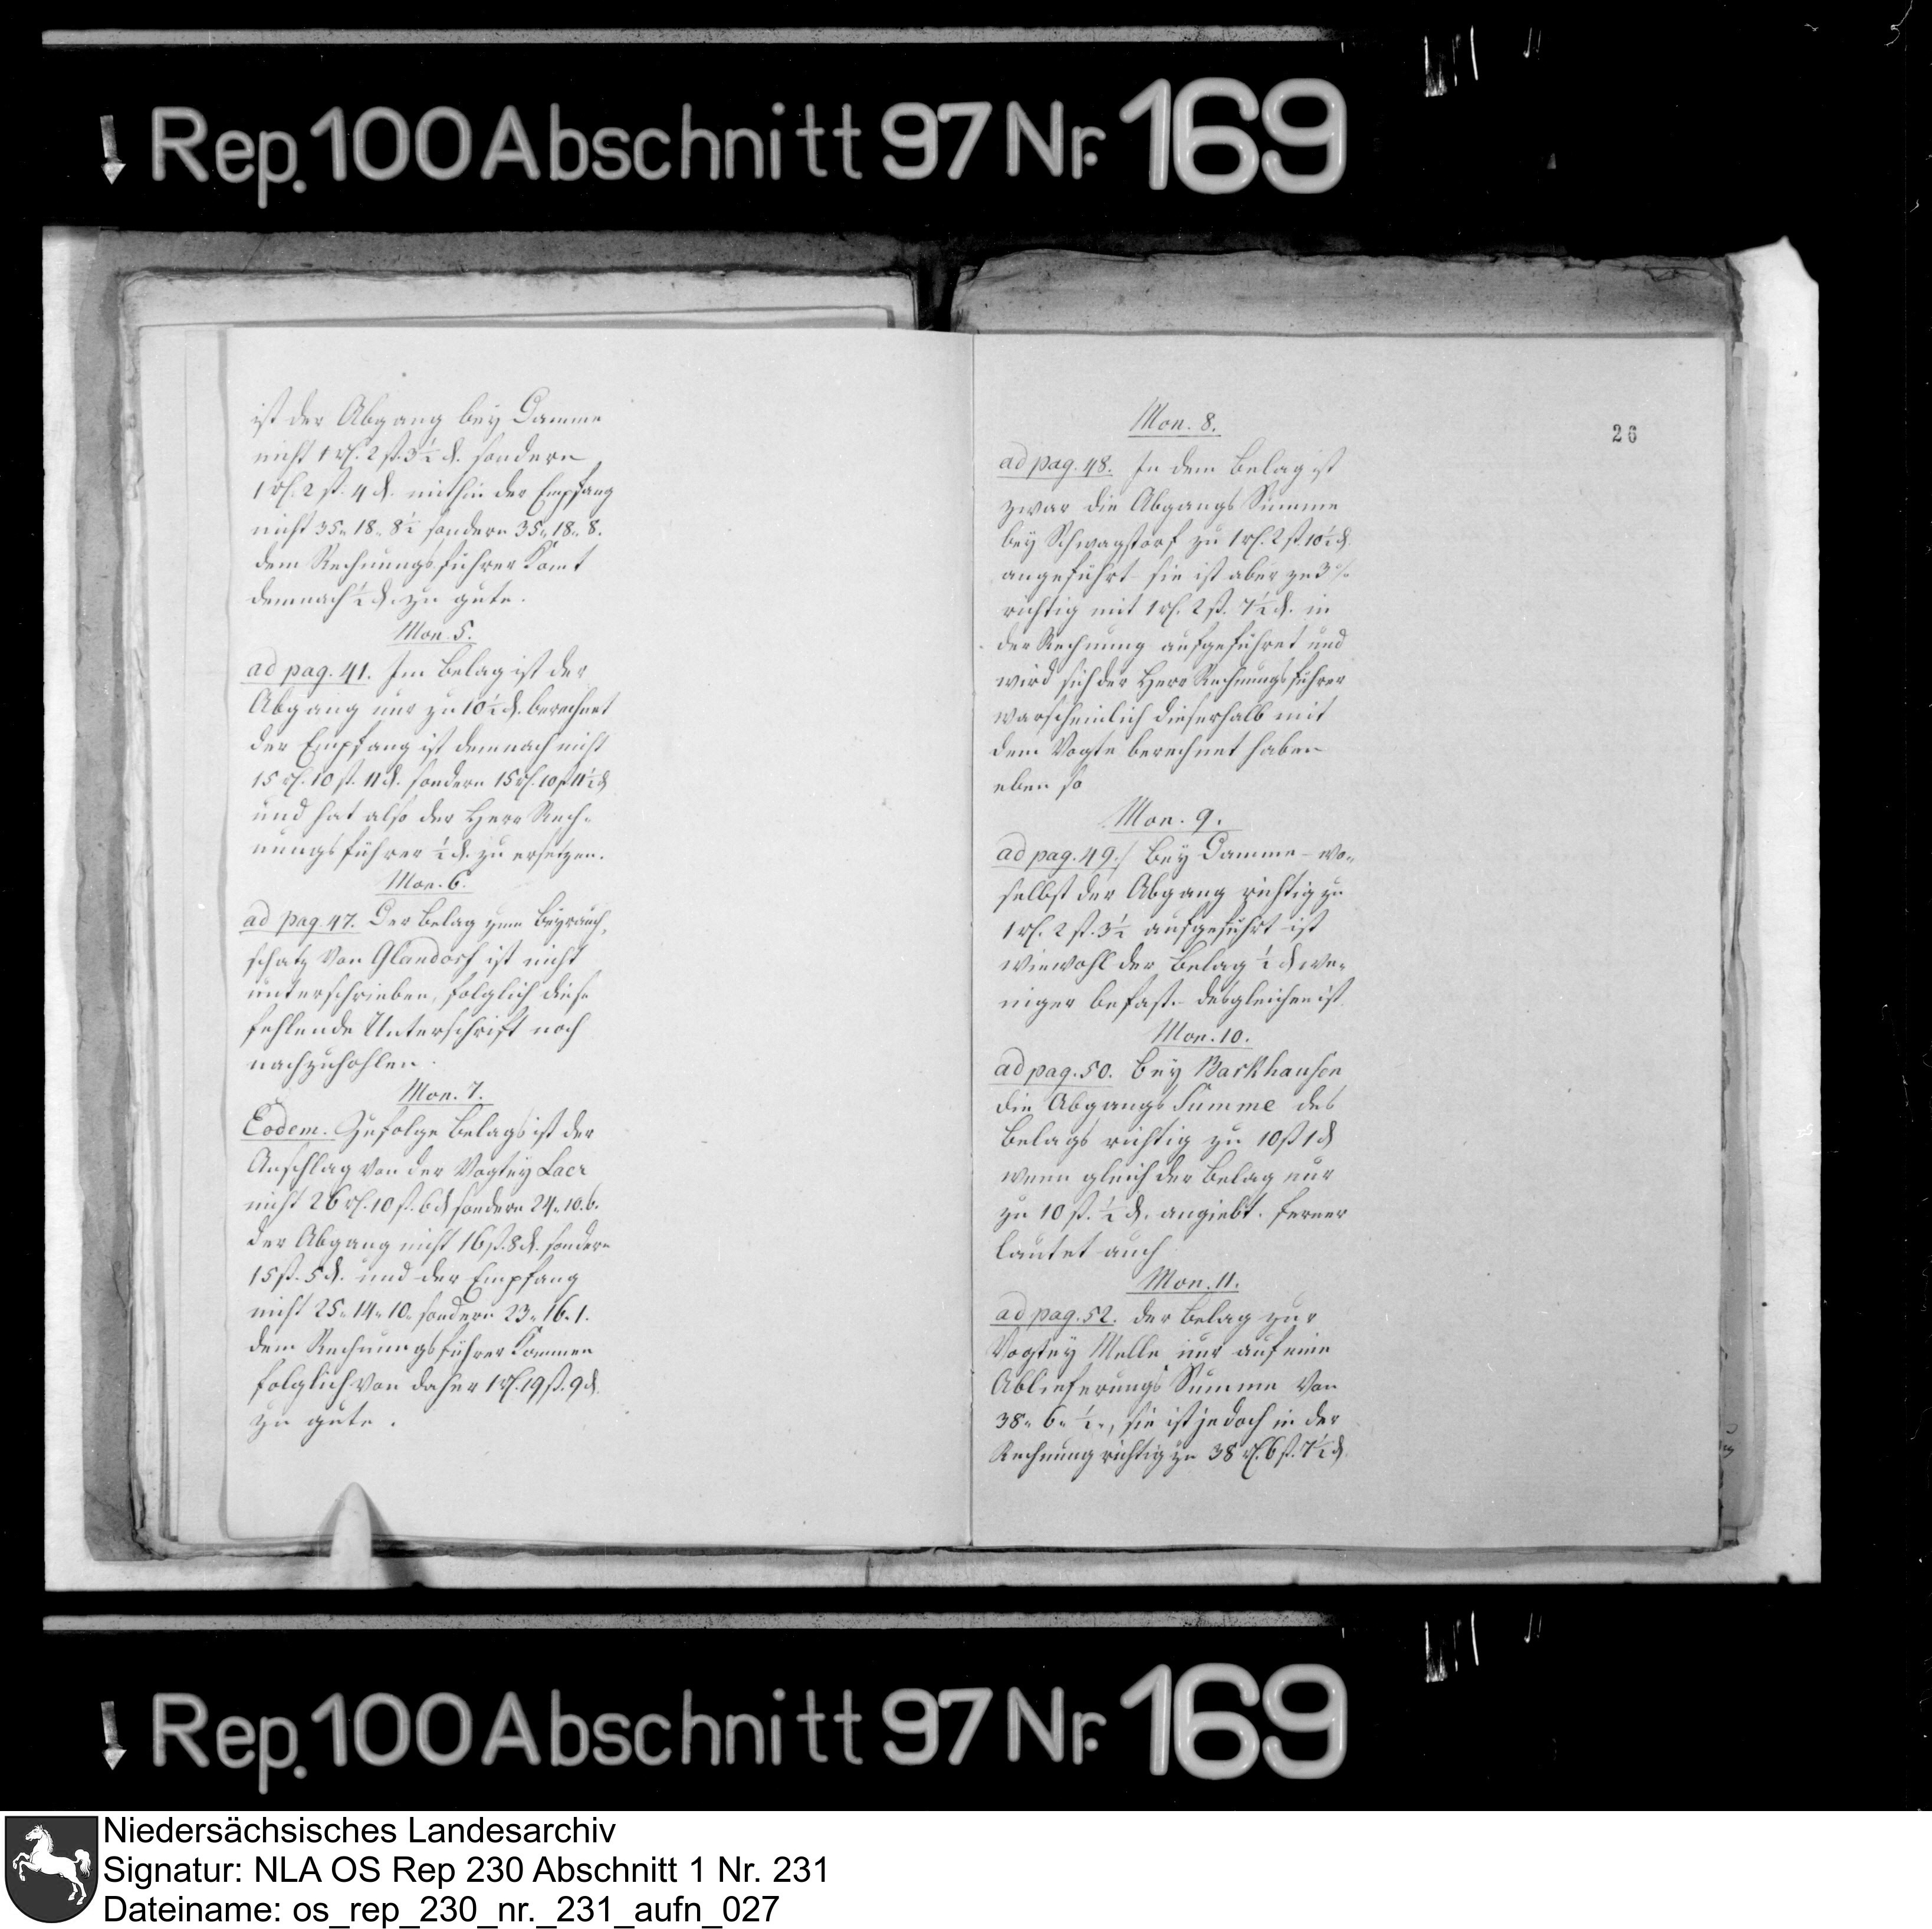 Rep. 100 Abschnitt 97 Nr. 169
ist der Abgang bey Damme
nicht 1 rl. 2 ß. 3½ d. sondern
1 rl. 2 ß. 4 d. mithin der Empfang
nicht 35„ 18„ 8½ sondern 35„ 18„ 8.
dem Rechnungsführer komt
demnach ½ d. zu gute.
Mon. 5.
ad pag. 41. Im Belag ist der
Abgang nur zu 10½ d. berechnet
der Empfang ist demnach nicht
15 rl. 10 ß. 11 d. sondern 15 rl. 10 ß 11½ d
und hat also der Herr Rech-
nungsführer ½ d. zu ersetzen.
Mon. 6.
ad pag. 47. Der Belag zum
schatz von Glandorf ist nicht
unterschrieben, folglich diese
fehlende Unterschrift noch
nachzuhohlen.
Mon. 7.
Eodem. Zufolge Belags ist der
Anschlag von der Vogtey Laer
nicht 26 rl. 10 ß. 6 d sondern 24„ 10. 6.
der Abgang nicht 16 ß. 8 d. sondern
15 ß. 5 d. und der Empfang
nicht 25„ 14„ 10„ sondern 23„ 16„ 1.
dem Rechnungsführer kommen
folglich von daher 1 rl. 19 ß. 9 d.
zu gute.
26
Mon. 8.
ad pag. 48. In dem Belag ist
zwar die Abgangs Summe
bey Schwagstorf zu 1 rl. 2 ß. 10½ d.
angeführt sie ist aber zu 3 %
richtig mit 1 rl. 2 ß. 7½ d. in
der Rechnung aufgeführet und
wird sich der Herr Rechnungsführer
warscheinlich dieserhalb mit
dem Vogte berechnet haben
eben so
Mon. 9.
ad pag. 49./ bey Damme – wo„
selbst der Abgang richtig zu
1 rl. 2 ß. 3½ aufgeführt ist
wiewohl der Belag ½ d we„
niger befaßt. desgleichen ist
Mon. 10.
ad pag. 50. bey Barkhausen
die Abgangs Summe des
Belags richtig zu 10 ß 1 d
wenn gleich der Belag nur
zu 10 ß. ½ d. angiebt. ferner
lautet auch
Mon. 11.
ad pag. 52. der Belag zur
Vogtey Melle nur auf eine
Ablieferungs Summe von
38„ 6„ ½„, sie ist jedoch in der
Rechnung richtig zu 38 rl. 6 ß. 7½ d.
Rep. 100 Abschnitt 97 Nr. 169
Niedersächsisches Landesarchiv
Signatur: NLA OS Rep 230 Abschnitt 1 Nr. 231
Dateiname: os_rep_230_nr._231_aufn_027